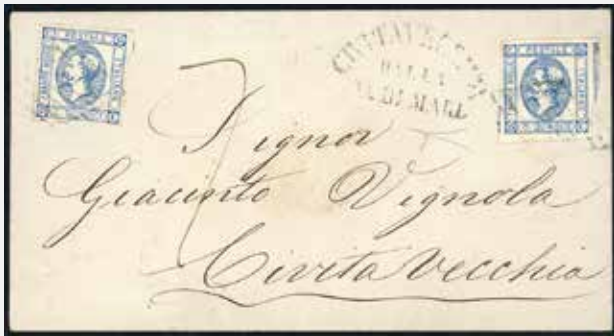 CIVITAVECCHIA
DALLA
VIA DI MARE
Signor
Giacinto Vignola
Civita Vecchia